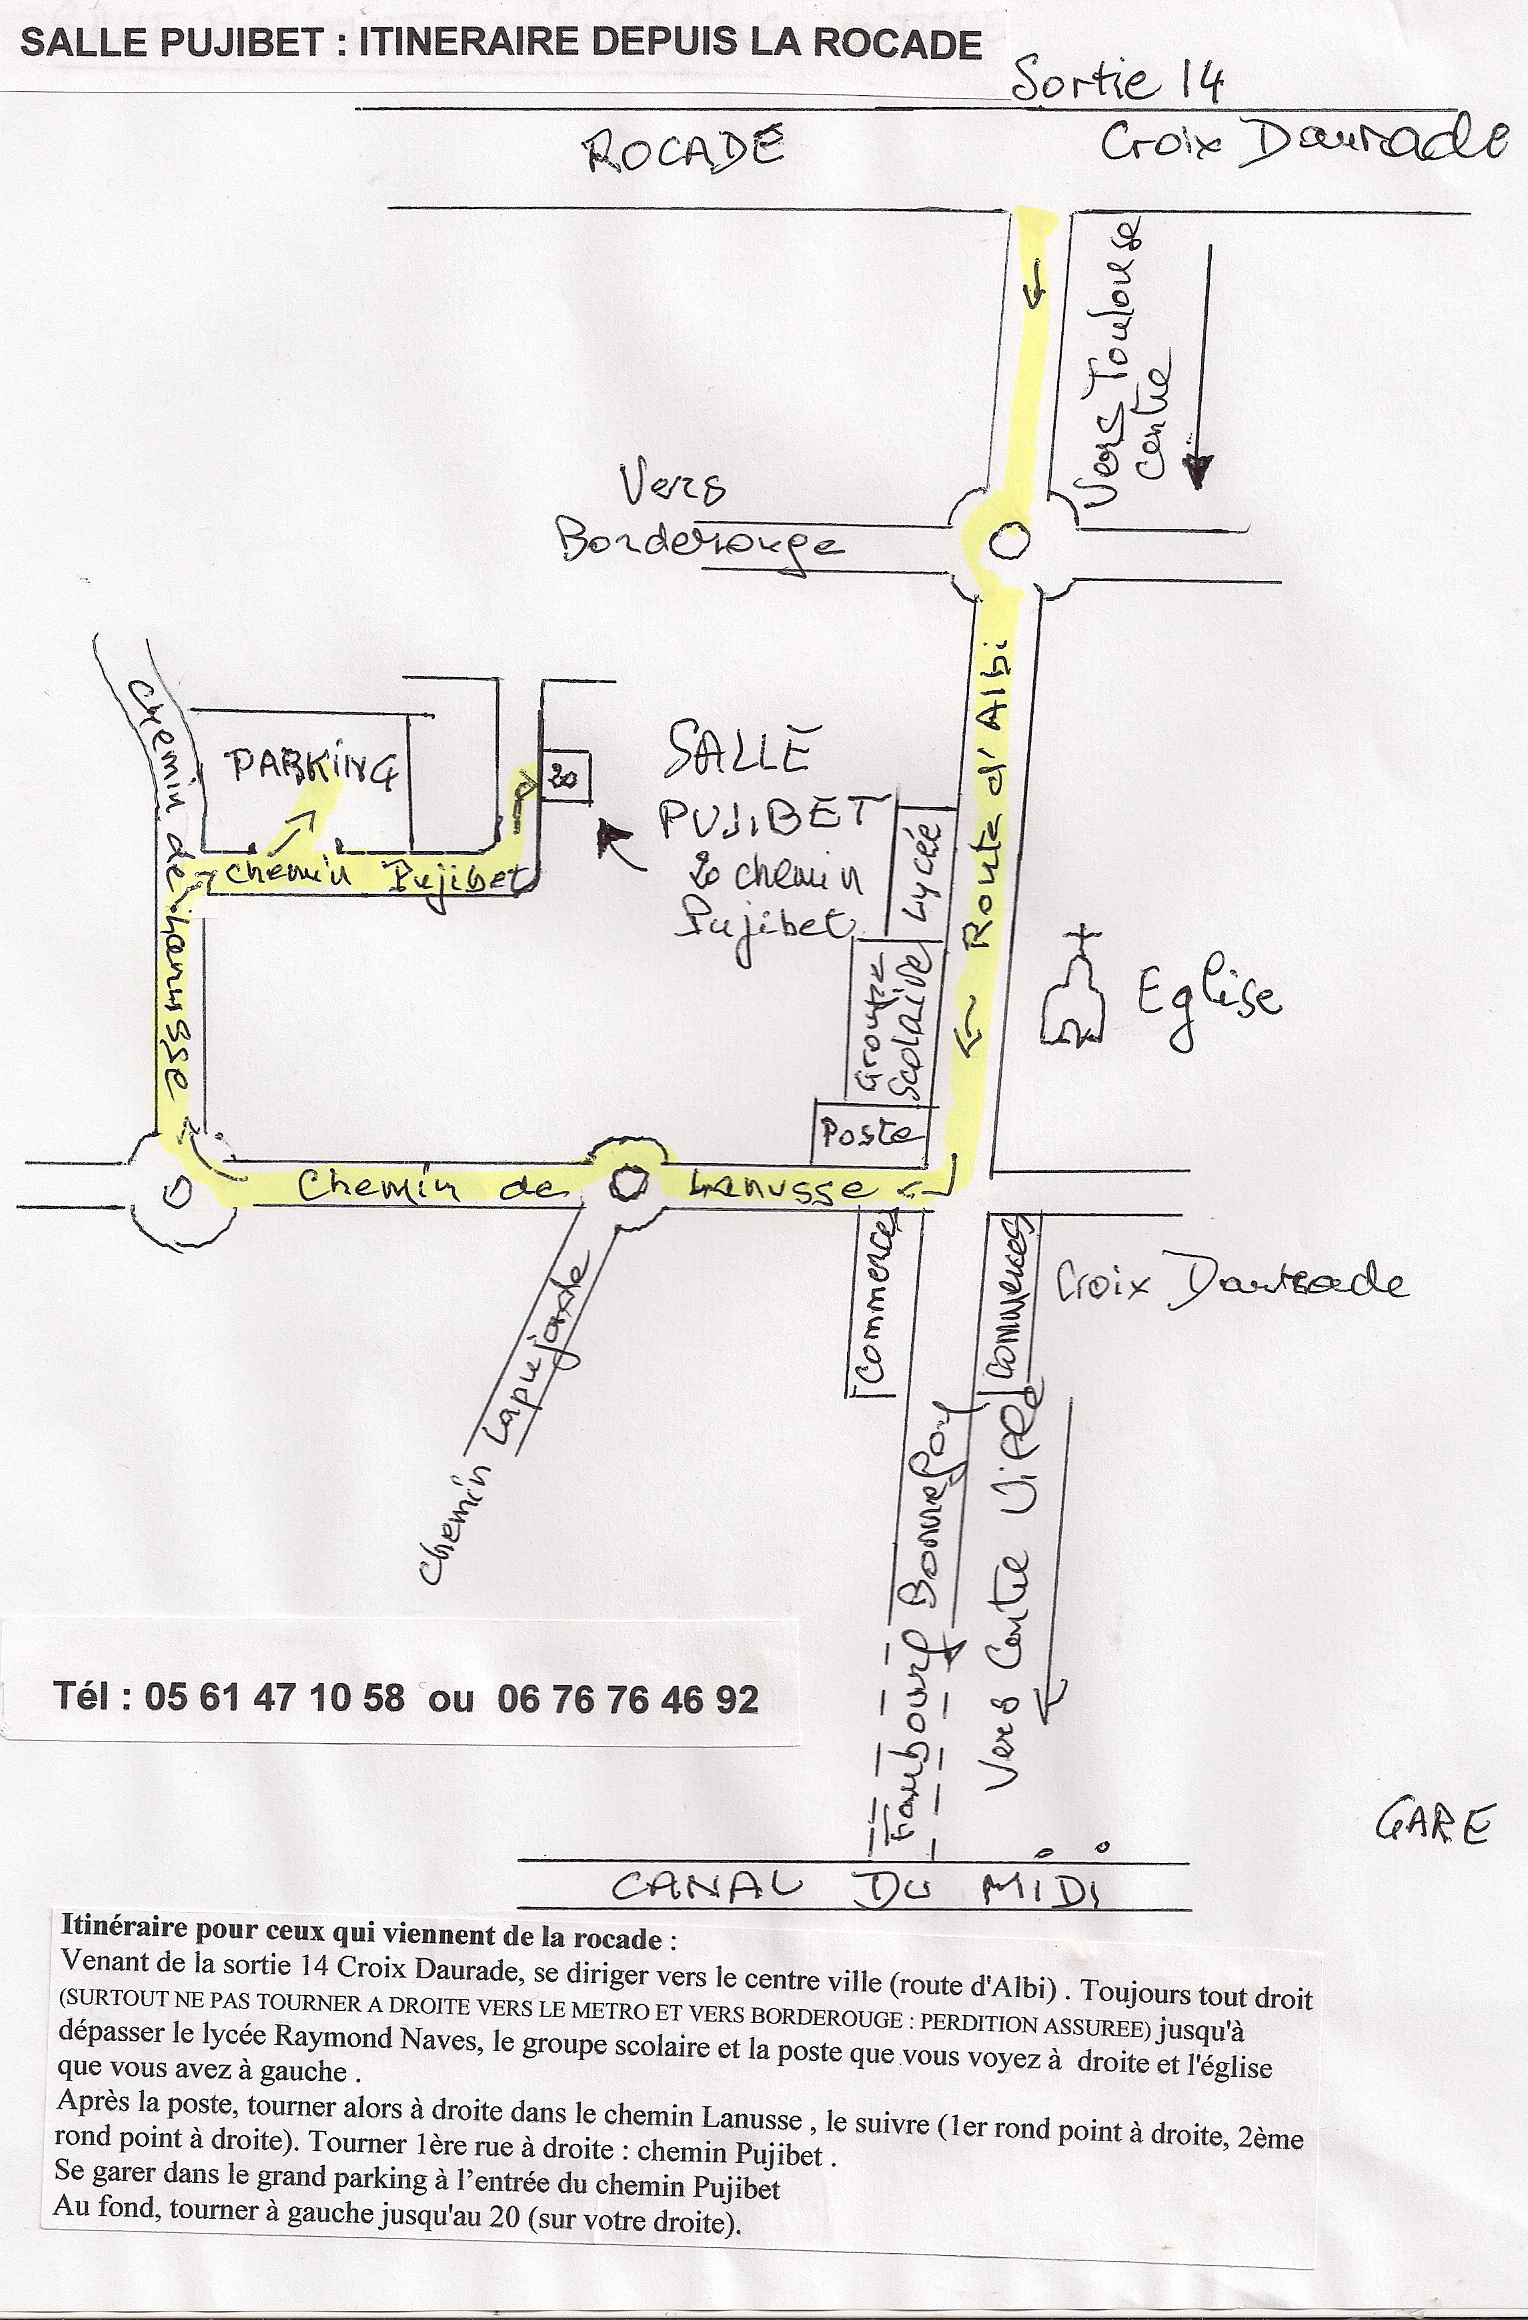 SALLE PUJIBET : ITINERAIRE DEPUIS LA ROCADE
Sortie 14
ROCADE
Croix Daurade
Vers Toulouse
centre
Vers
Borderouge
Route d'Albi
Chemin de Lanusse
PARKING
20
SALLE
PUJIBET
20 chemin
Pujibet
Chemin Pujibet
Lycée
Groupe
Scolaire
Eglise
Poste
Chemin de Lanusse
Commerces
Commerces
Croix Daurade
Chemin Lapujade
Faubourg Bonnefoy
Vers Centre Ville
Tél : 05 61 47 10 58 ou 06 76 76 46 92
GARE
CANAL DU MIDI
Itinéraire pour ceux qui viennent de la rocade :
Venant de la sortie 14 Croix Daurade, se diriger vers le centre ville (route d'Albi) . Toujours tout droit
(SURTOUT NE PAS TOURNER A DROITE VERS LE METRO ET VERS BORDEROUGE : PERDITION ASSUREE) jusqu'à
dépasser le lycée Raymond Naves, le groupe scolaire et la poste que vous voyez à droite et l'église
que vous avez à gauche .
Après la poste, tourner alors à droite dans le chemin Lanusse , le suivre (1er rond point à droite, 2ème
rond point à droite). Tourner 1ère rue à droite : chemin Pujibet .
Se garer dans le grand parking à l'entrée du chemin Pujibet
Au fond, tourner à gauche jusqu'au 20 (sur votre droite).